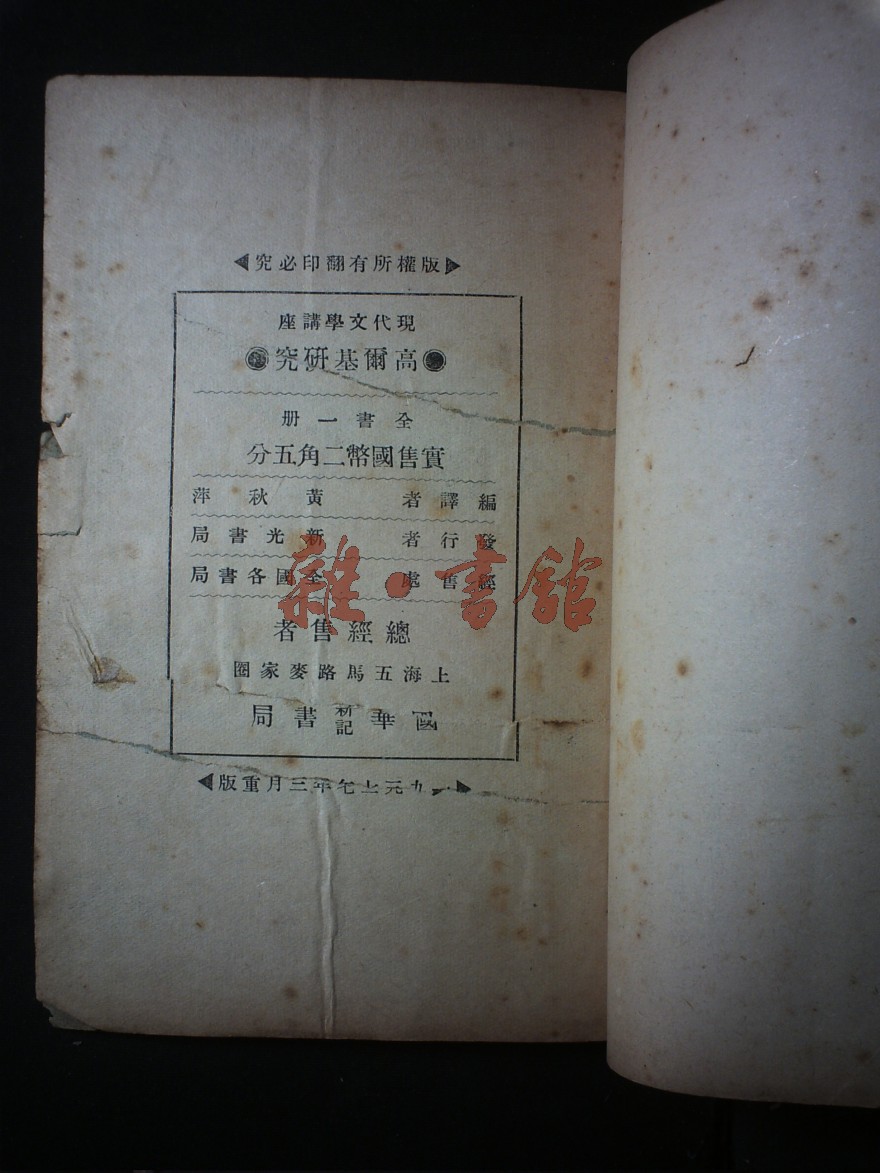 版權所有翻印必究
現代文學講座
高爾基研究
全書一册
實售國幣二角五分
編譯者 黃秋萍
發行者 新光書局
經售處 全國各書局
總經售者
上海五馬路麥家圈
國華新記書局
一九年三月重版
雜·書館